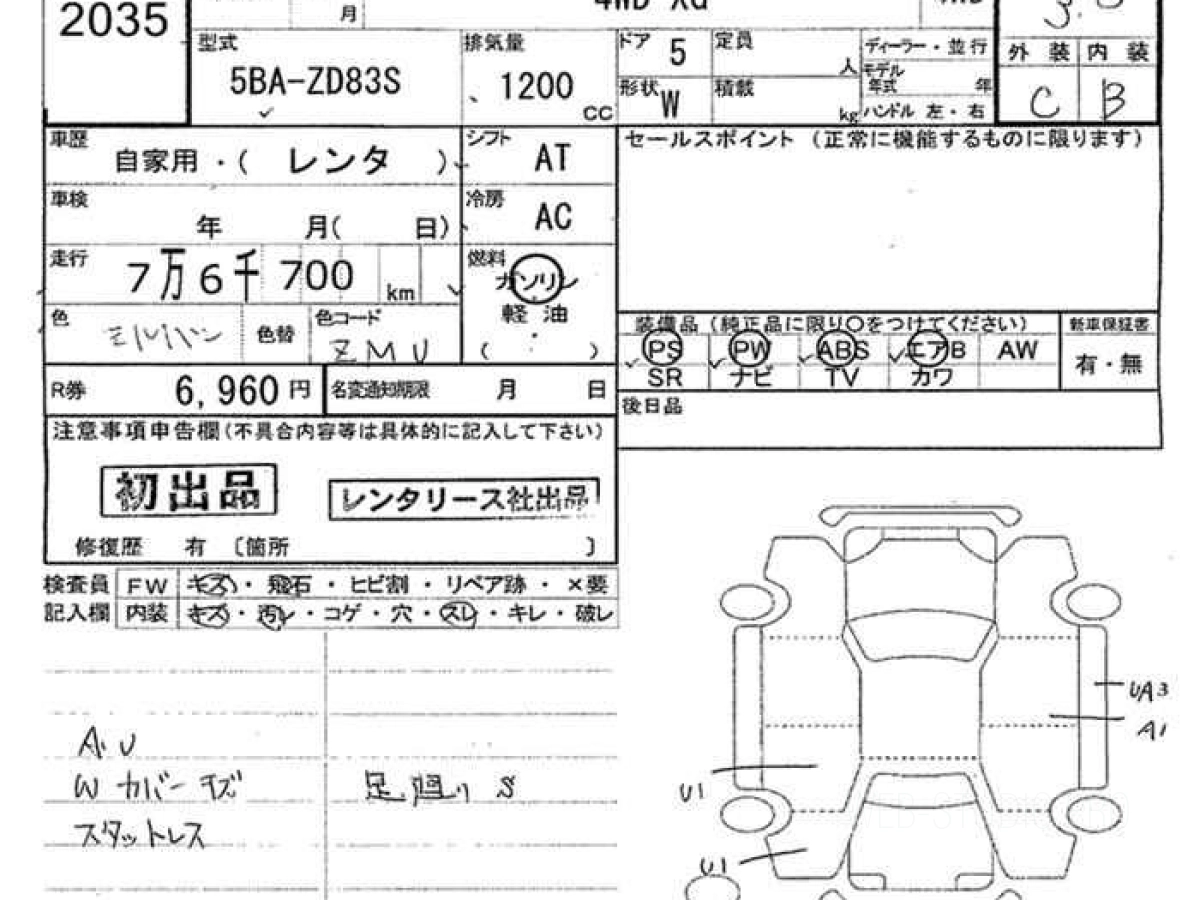 2035
月
4WD XG
型式
5BA-ZD83S
排気量
1200
CC
ドア 5
定員
人
形状 W
積載
kg
ディーラー・並行
モデル年式 年
ハンドル 左・右
外装 内装
C B
車歴
自家用・( レンタ )
シフト
AT
セールスポイント (正常に機能するものに限ります)
車検
年 月( 日)
冷房
AC
走行
7万6千700 km
燃料
ガソリン
軽油
( )
色
色替
色コード
ZMU
装備品 (純正品に限り○をつけてください)
新車保証書
PS PW ABS エアB AW
有・無
SR ナビ TV カワ
R券 6,960 円
名変通知期限 月 日
後日品
注意事項申告欄(不具合内容等は具体的に記入して下さい)
初出品
レンタリース社出品
修復歴 有 〔箇所 〕
検査員 FW キズ・飛石・ヒビ割・リペア跡・×要
記入欄 内装 キズ・汚レ・コゲ・穴・スレ・キレ・破レ
A・U
W カバーキズ
足廻り S
スタットレス
UA3
A1
U1
U1